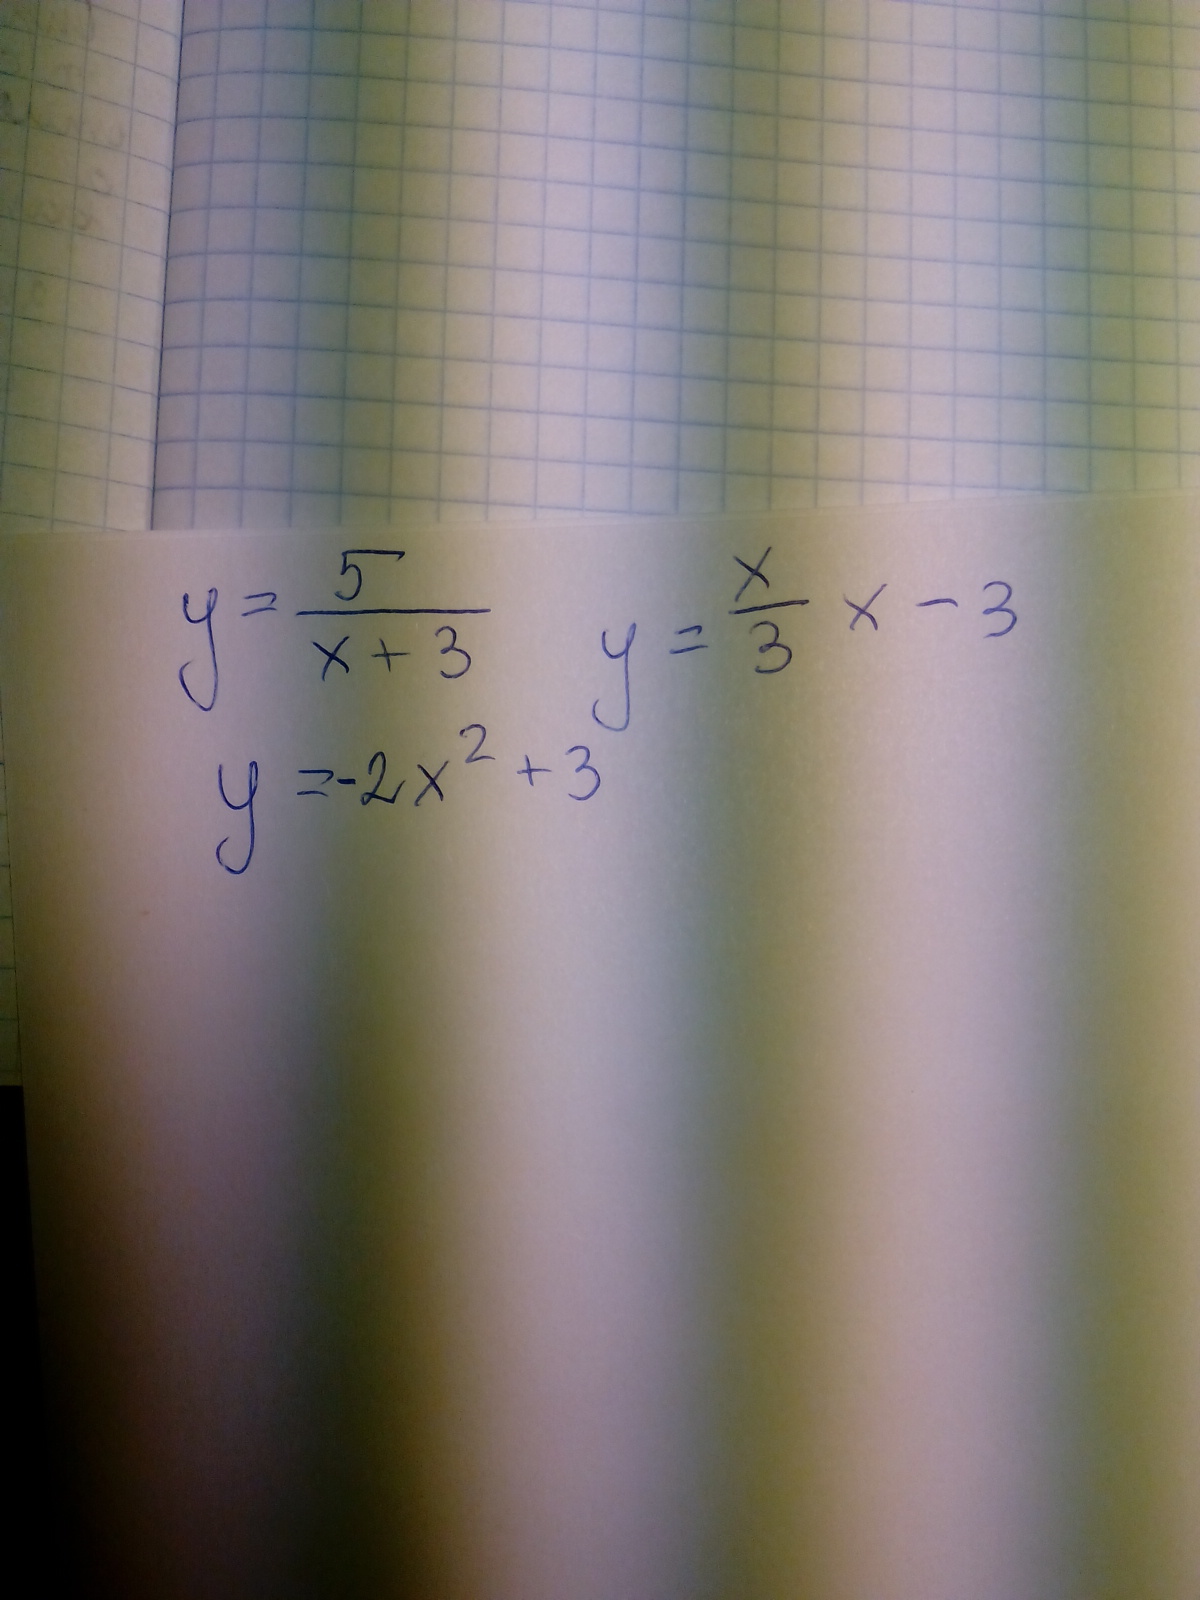 y = 5/(x + 3) y = x/3 x - 3
y = -2x² + 3